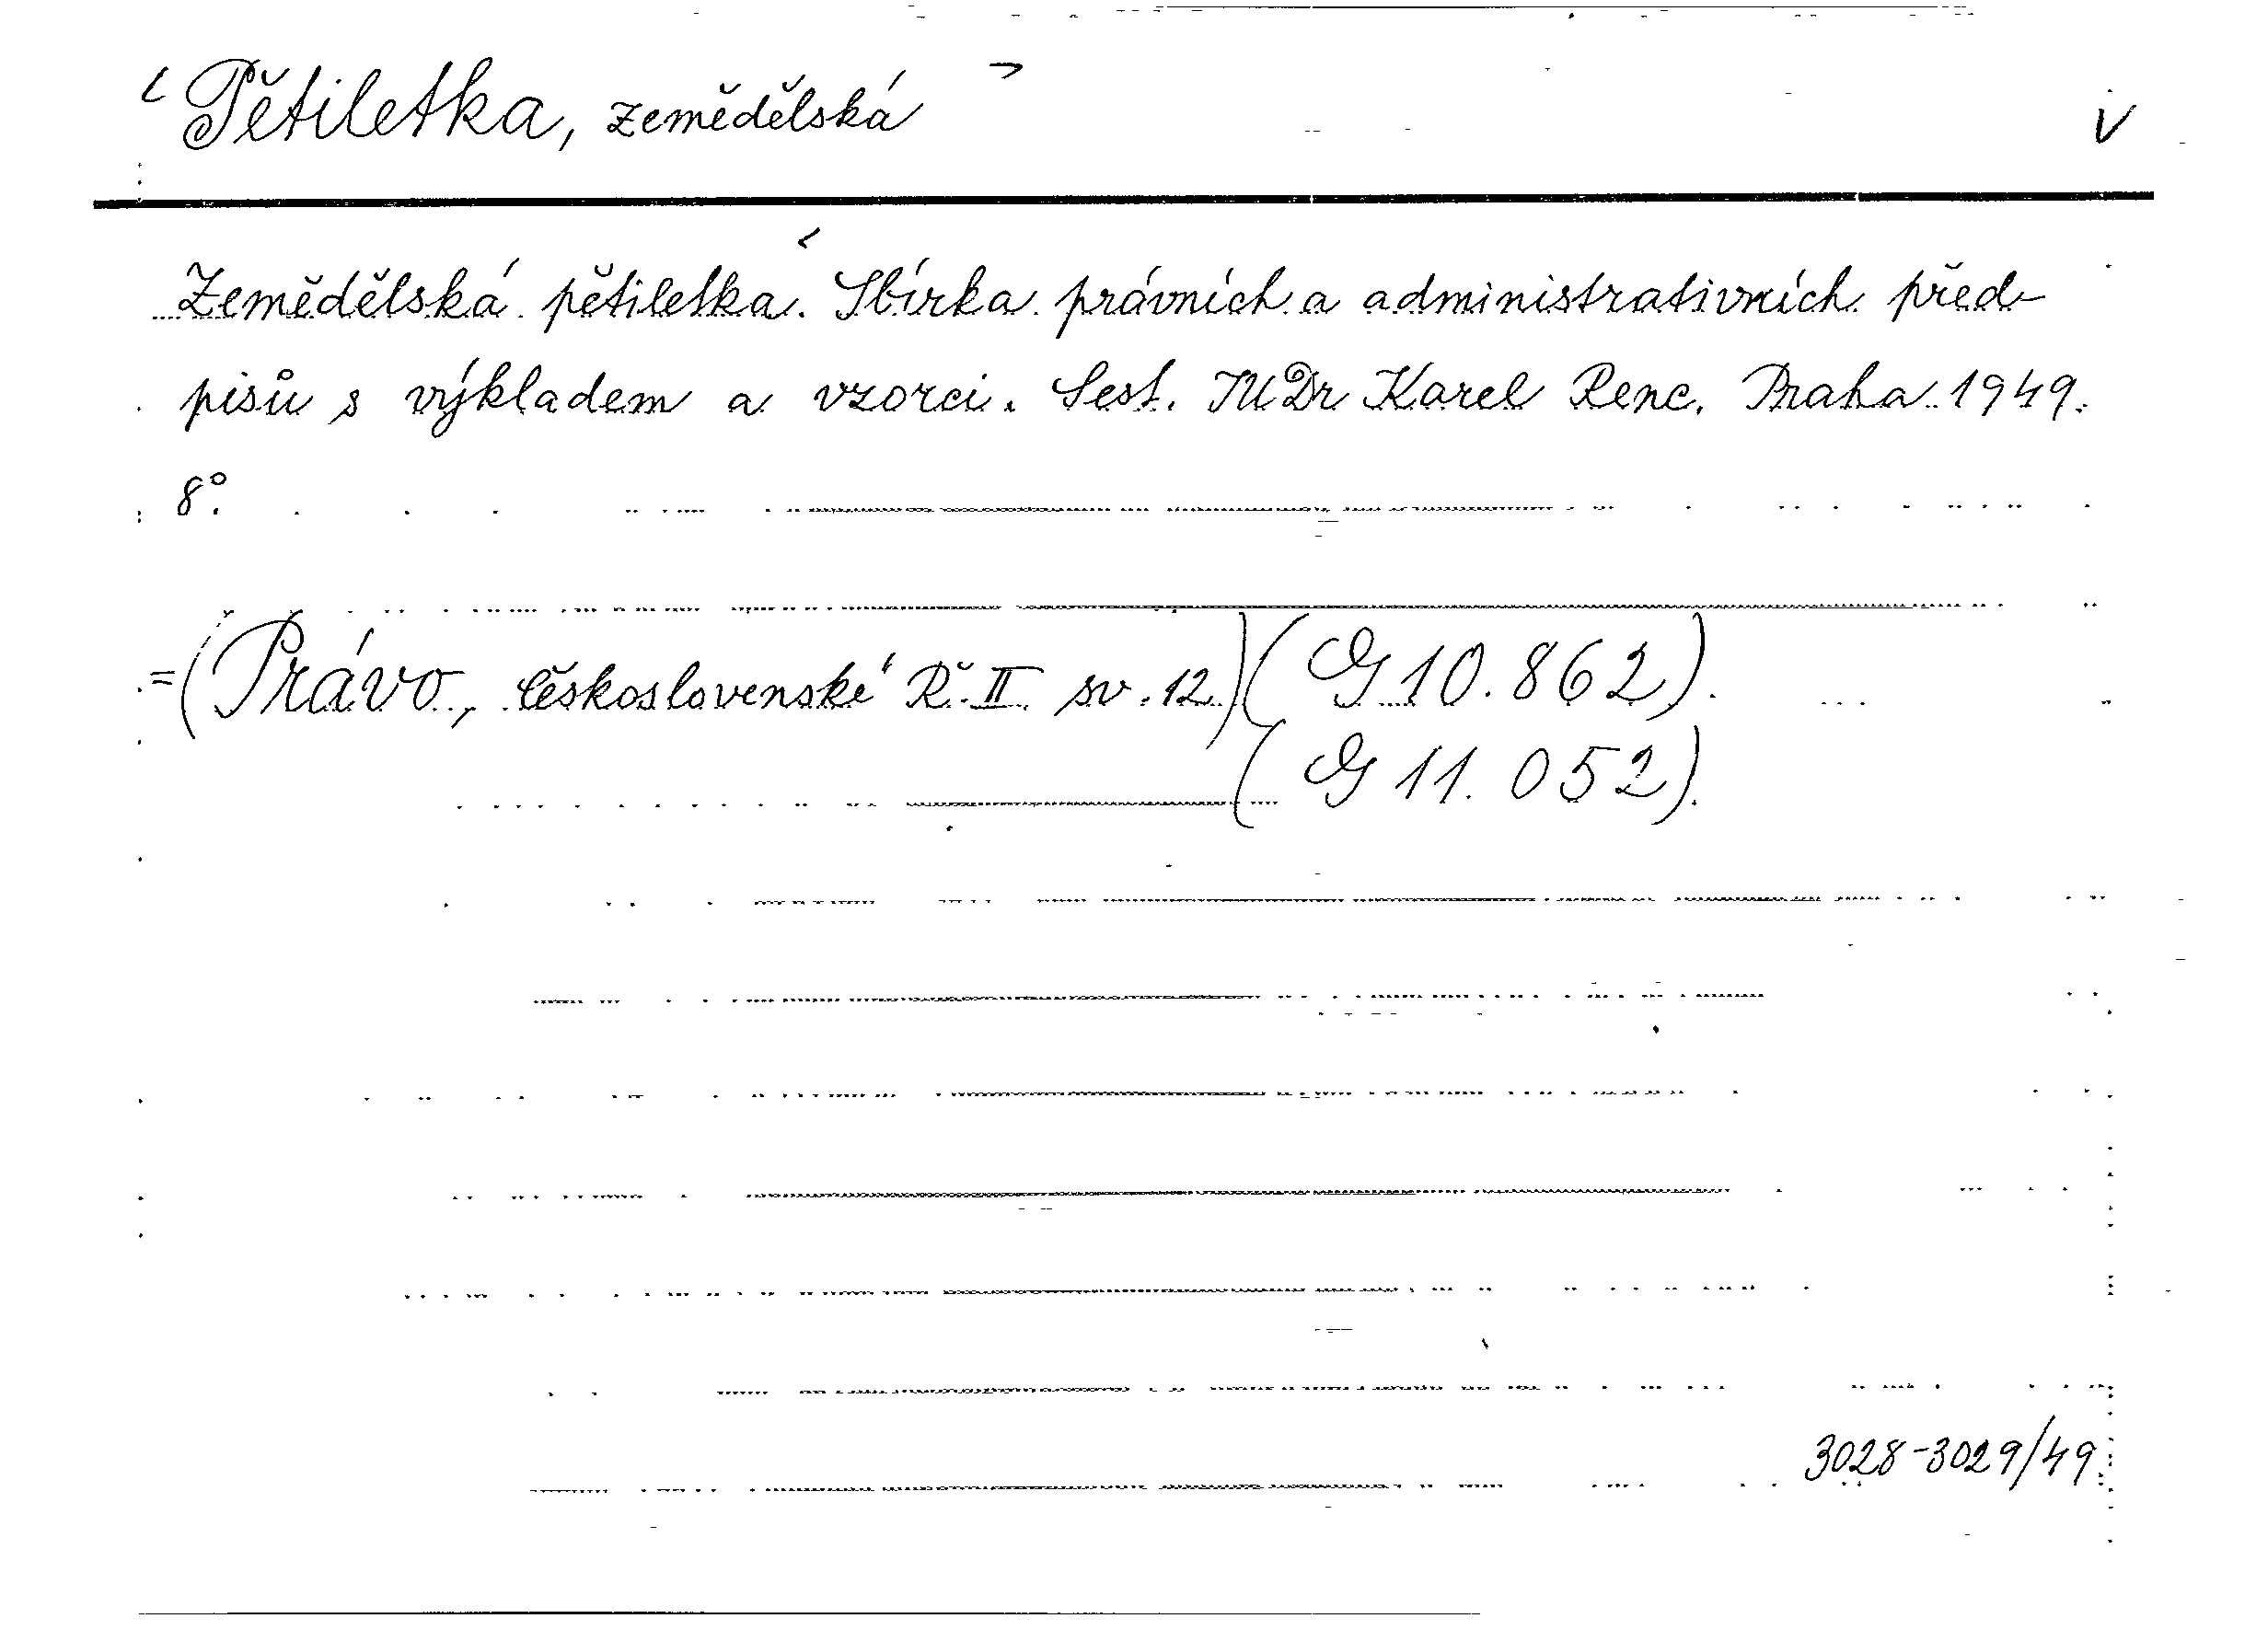 Pětiletka, zemědělská
V
Zemědělská pětiletka. Sbírka právních a administrativních před-
pisů s výkladem a vzorci. Sest. JUDr Karel Renc. Praha 1949.
8°.
=(Právo, československé Ř. II sv. 12)(G 10.862).
(G 11.052).
3028-3029/49.